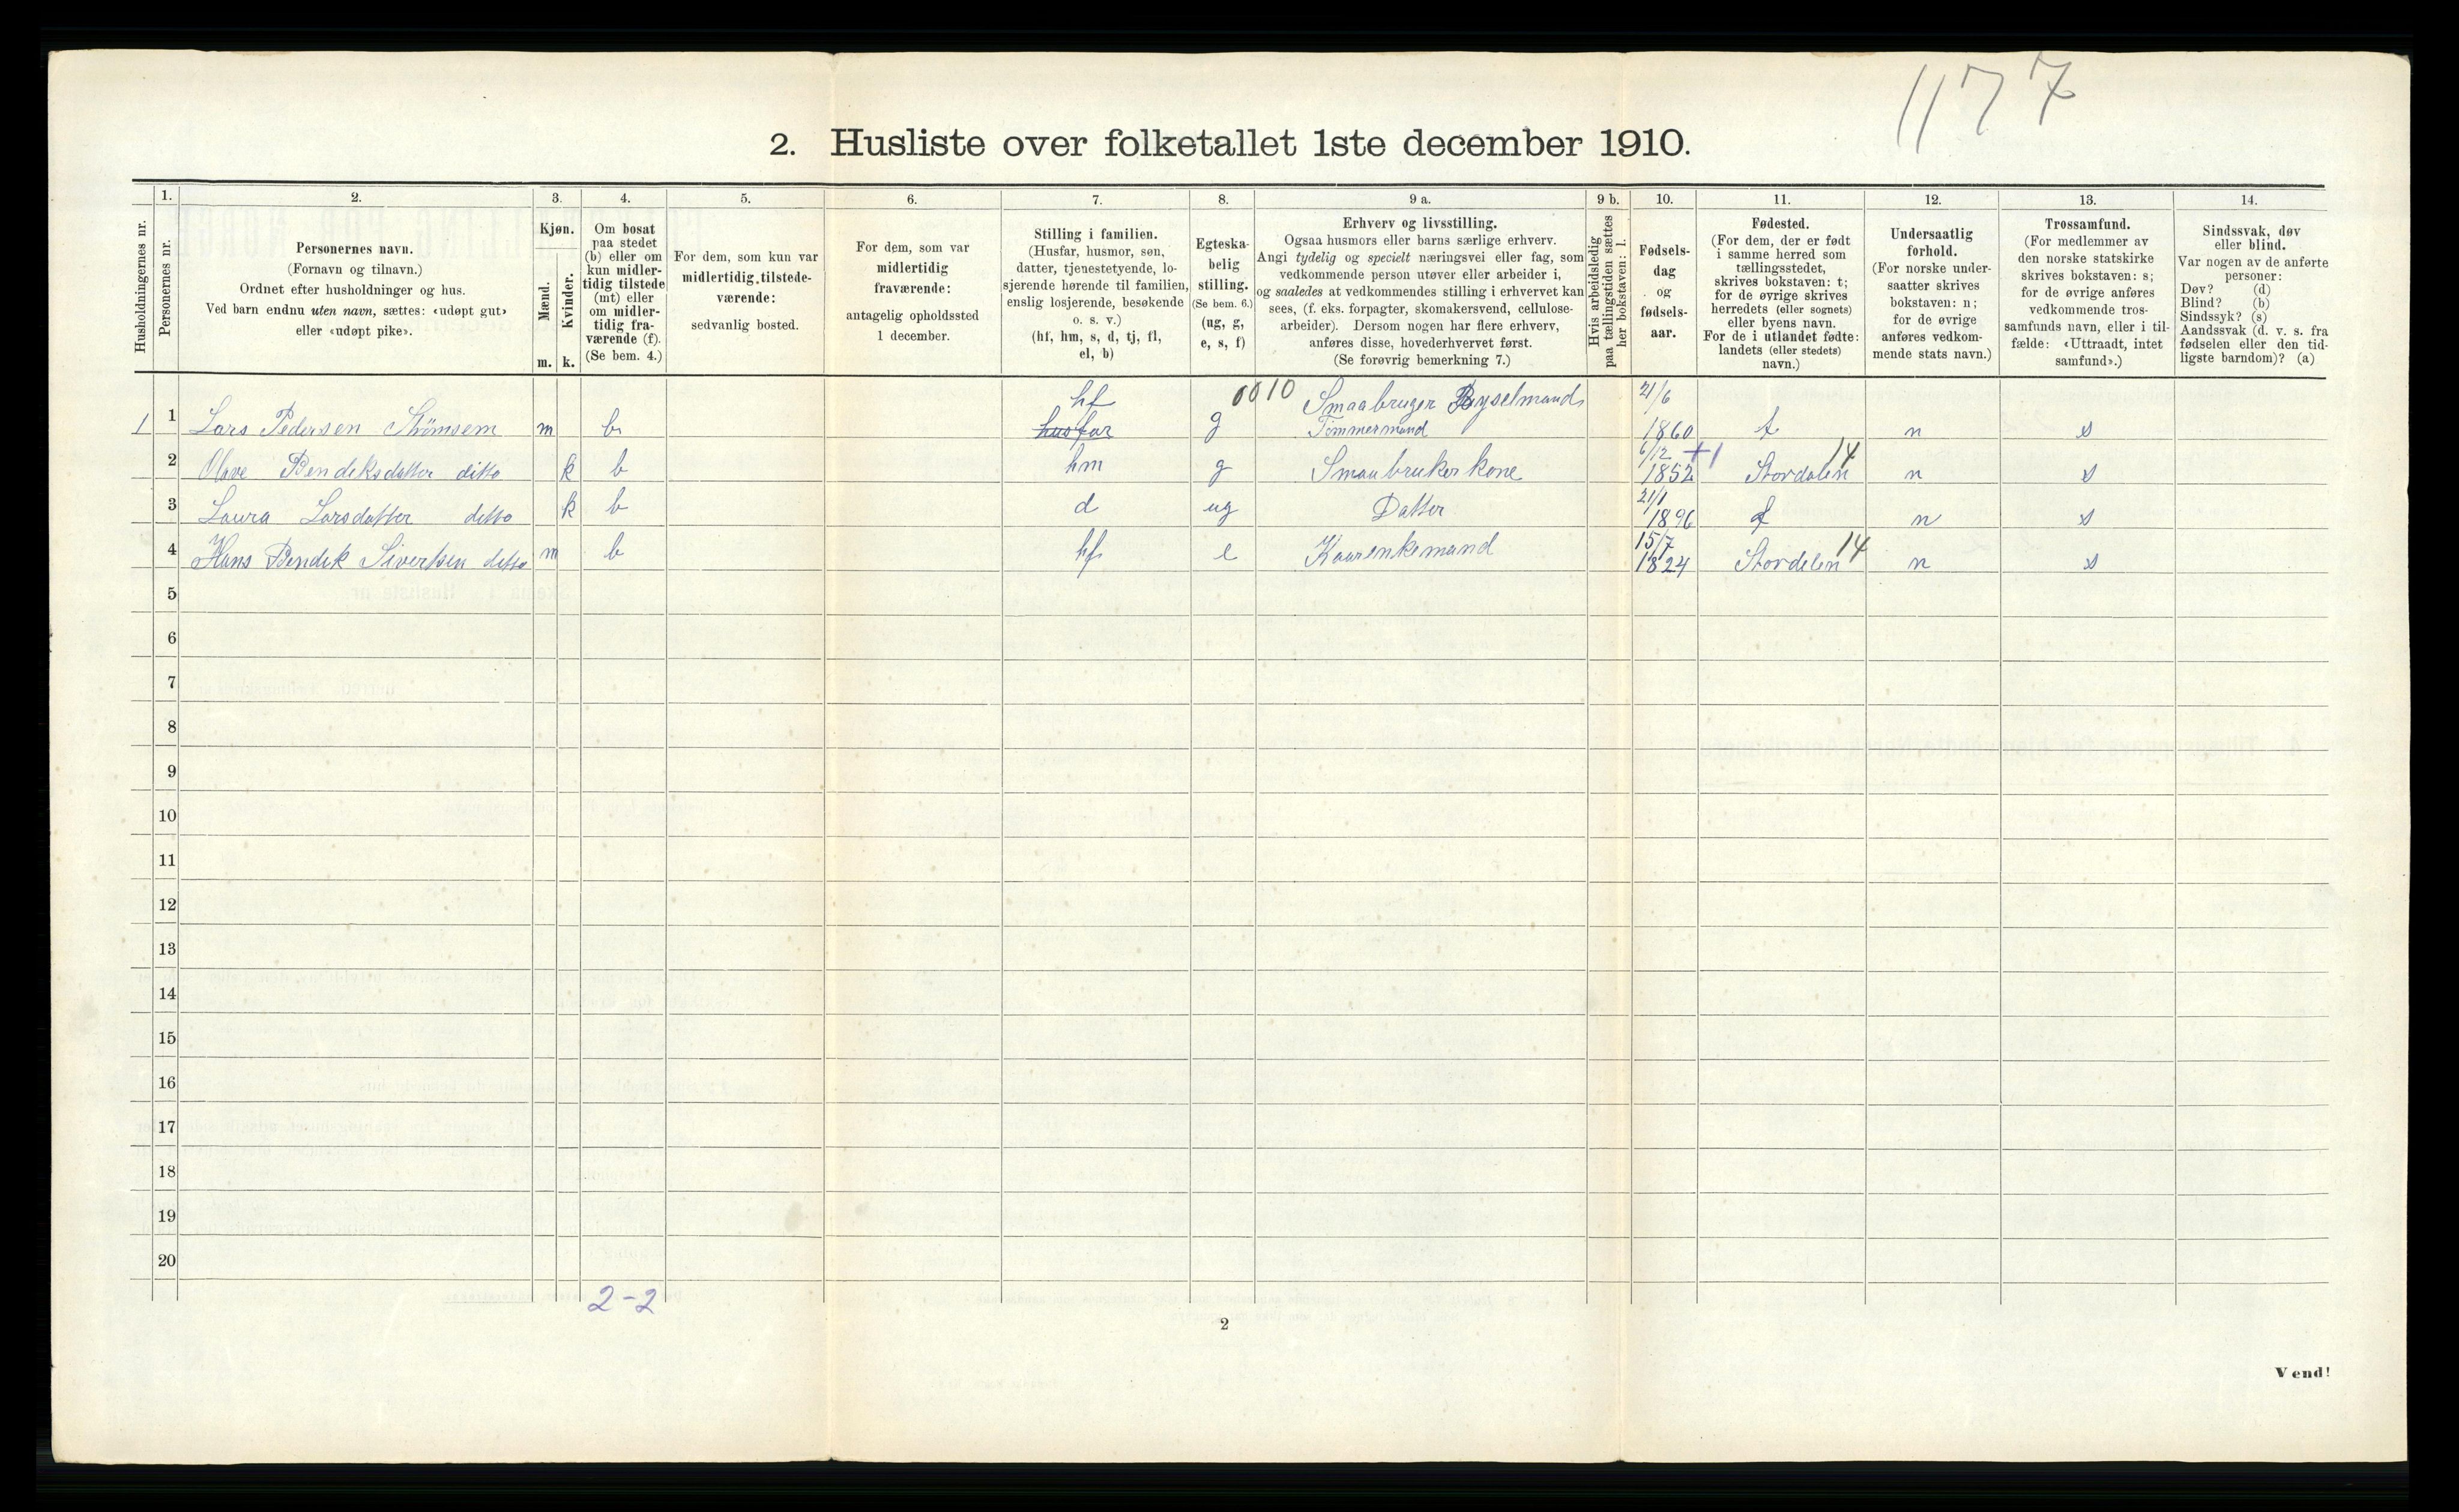 1177
2. Husliste over folketallet 1ste december 1910.
Husholdningernes nr.
1.
Personernes nr.
2.
Personernes navn.
(Fornavn og tilnavn.)
Ordnet efter husholdninger og hus.
Ved barn endnu uten navn, sættes: «udøpt gut»
eller «udøpt pike».
3.
Kjøn.
Mænd.
Kvinder.
m. k.
4.
Om bosat
paa stedet
(b) eller om
kun midler-
tidig tilstede
(mt) eller
om midler-
tidig fra-
værende (f).
(Se bem. 4.)
5.
For dem, som kun var
midlertidig tilstede-
værende:
sedvanlig bosted.
6.
For dem, som var
midlertidig
fraværende:
antagelig opholdssted
1 december.
7.
Stilling i familien.
(Husfar, husmor, søn,
datter, tjenestetyende, lo-
sjerende hørende til familien,
enslig losjerende, besøkende
o. s. v.)
(hf, hm, s, d, tj, fl,
el, b)
8.
Egteska-
belig
stilling.
(Se bem. 6.)
(ug, g,
e, s, f)
9 a.
Erhverv og livsstilling.
Ogsaa husmors eller barns særlige erhverv.
Angi tydelig og specielt næringsvei eller fag, som
vedkommende person utøver eller arbeider i,
og saaledes at vedkommendes stilling i erhvervet kan
sees, (f. eks. forpagter, skomakersvend, cellulose-
arbeider). Dersom nogen har flere erhverv,
anføres disse, hovederhvervet først.
(Se forøvrig bemerkning 7.)
9 b.
Hvis arbeidsledig
paa tællingstiden sættes
her bokstaven: l.
10.
Fødsels-
dag
og
fødsels-
aar.
11.
Fødested.
(For dem, der er født
i samme herred som
tællingsstedet,
skrives bokstaven: t;
for de øvrige skrives
herredets (eller sognets)
eller byens navn.
For de i utlandet fødte:
landets (eller stedets)
navn.)
12.
Undersaatlig
forhold.
(For norske under-
saatter skrives
bokstaven: n;
for de øvrige
anføres vedkom-
mende stats navn.)
13.
Trossamfund.
(For medlemmer av
den norske statskirke
skrives bokstaven: s;
for de øvrige anføres
vedkommende tros-
samfunds navn, eller i til-
fælde: «Uttraadt, intet
samfund».)
14.
Sindssvak, døv
eller blind.
Var nogen av de anførte
personer:
Døv? (d)
Blind? (b)
Sindssyk? (s)
Aandssvak (d. v. s. fra
fødselen eller den tid-
ligste barndom)? (a)
hf 0010 Smaabruger 21/6
1 1 Lars Pedersen Strømsem m b husfar g Tømmermand 1860 t n s
6/12 +1 14
2 Olave Bendeksdatter ditto k b hm g Smaabruker kone 1852 Stordalen n s
21/1
3 Laura Larsdatter ditto k b d ug Datter 1896 t n s
15/7 14
4 Hans Bendik Sivertsen ditto m b hf e Kaarenkemand 1824 Stordalen n s
5
6
7
8
9
10
11
12
13
14
15
16
17
18
19
20
2-2
2
Vend!